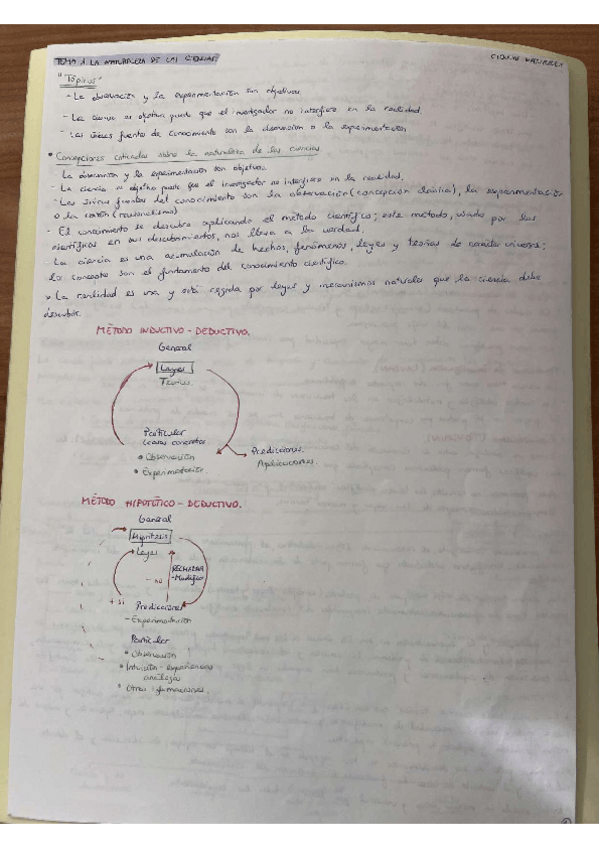 TEMA 1 LA NATURALEZA DE LAS CIENCIAS
"Tópicos"
- La observación y la experimentación son objetivas.
- La ciencia es objetiva puesto que el investigador no interfiere en la realidad.
- Las únicas fuentes de conocimiento son la observación o la experimentación
Concepciones criticadas sobre la naturaleza de las ciencias.
La observación y la experimentación son objetivas.
- La ciencia es objetiva puesto que el investigador no interfiere en la realidad.
- Las únicas fuentes del conocimiento son la observación (concepción clásica), la experimentación
o la razón (racionalismo)
- El conocimiento se descubre aplicando el método científico; este método, usado por los
científicos en sus descubrimientos, nos lleva a la verdad.
La ciencia es una acumulación de hechos, fenómenos, leyes y teorías de
son el fundamento del conocimiento científico.
La realidad es una y está regida por leyes y mecanismos naturales que la ciencia debe
descubrir.
MÉTODO INDUCTIVO - DEDUCTIVO.
General
Leyes
Teorías
Particular
(casos concretos
• Observación
• Experimentación
Predicciones.
Aplicaciones.
MÉTODO HIPOTÉTICO - DEDUCTIVO.
General
Hipótesis
Leyes
RECHAZAR
- Modifico
- no
+ si
Predicciones
- Experimentación
Particular
• Observación
• Intuición - experiencias
analogía
• Otras informaciones.